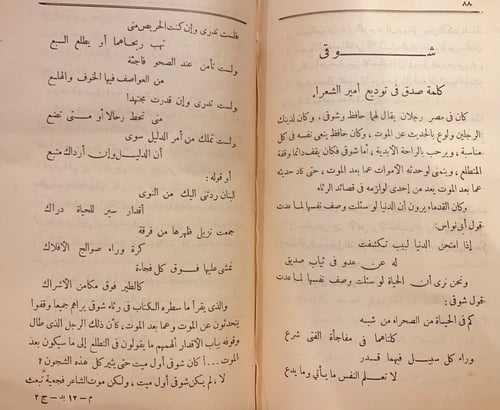 ٨٨
شوقى
كلمة صدق فى توديع أمير الشعراء
كان فى مصر رجلان يقال لهما حافظ وشوقى. وكان لذينك
الرجلين ولوع بالحديث عن الموت، وكان حافظ ينعى نفسه فى كل
مناسبة، ويرحب بالراحة الأبدية، أما شوقى فكان يقف دائما وقفة
المتطلع، ويتمنى لو حدثته الأموات عما بعد الموت، حتى كاد حديثه
عما بعد الموت يعد من إحدى لوازمه فى قصائد الرثاء
وكان القدماء يرون أن الدنيا لو سئلت وصف نفسها لما عدت
قول أبى نواس:
إذا امتحن الدنيا لبيب تكشفت
له عن عدو فى ثياب صديق
ونحن نرى أن الحياة لو سئلت وصف نفسها لما عدت
قول شوقى:
كم فى الحياة من الصحراء من شبه
كلتاهما فى مفاجأة الفتى شرع
وراء كل سبيل فيهما قدر
لا تعلم النفس ما يأتى وما يدع
فلست تدرى وإن كنت الحريص متى
تهب ريحاهما أو يطلع السبع
ولست تأمن عند الصحو فاجئة
من العواصف فيها الخوف والهلع
ولست تدرى وإن قدرت مجتهدا
متى تحط رحالا أو متى تضع
ولست تملك من أمر الدليل سوى
أن الدليل وإن أرداك متبع
أو قوله:
لبنان ردتنى اليك من النوى
أقدار سير للحياة دراك
جمعت نزيلى ظهرها من فرقة
كرة وراء صوالج الأفلاك
نمشى عليها فوق كل فجاءة
كالطير فوق مكامن الأشراك
والذى يقرأ ما سطره الكتاب فى رثاء شوقى يراهم جميعا وقفوا
يتحدثون عن الموت وعما بعد الموت، كأن ذلك الرجل الذى طال
وقوفه بباب الأقدار ألهمهم ما يقولون فى التطلع إلى ما سيكون بعد
الموت... أ كان شوقى أول ميت حتى يثير كل هذه الشجون؟
لا. لم يكن شوقى أول ميت، ولكن موت الشاعر فجعية تبعث
م - ١٢ بد - ج ٢